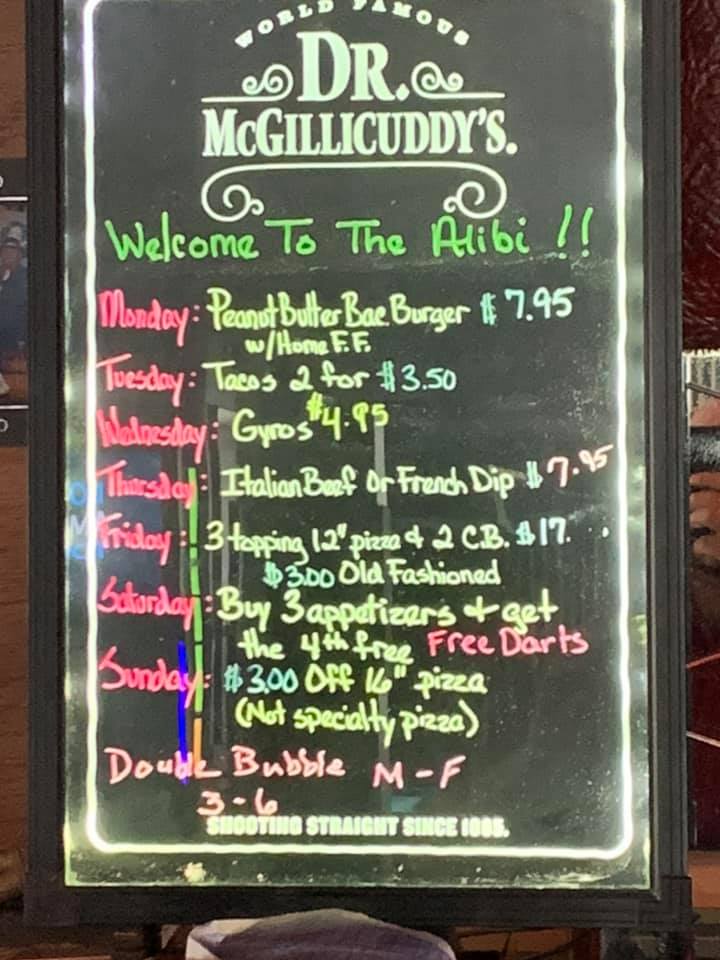 WORLD FAMOUS
DR.
McGILLICUDDY'S.
Welcome To The Alibi !!
Monday: Peanut Butter Bac. Burger $ 7.95
w/Home F.F.
Tuesday: Tacos 2 for $3.50
Wednesday: Gyros $4.95
Thursday: Italian Beef Or French Dip $ 7.95
Friday: 3 topping 12" pizza & 2 C.B. $17.
$3.00 Old Fashioned
Saturday: Buy 3 appetizers + get
the 4th free Free Darts
Sunday: $3.00 Off 16" pizza
(Not specialty pizza)
Double Bubble M-F
3-6
SHOOTING STRAIGHT SINCE 1865.